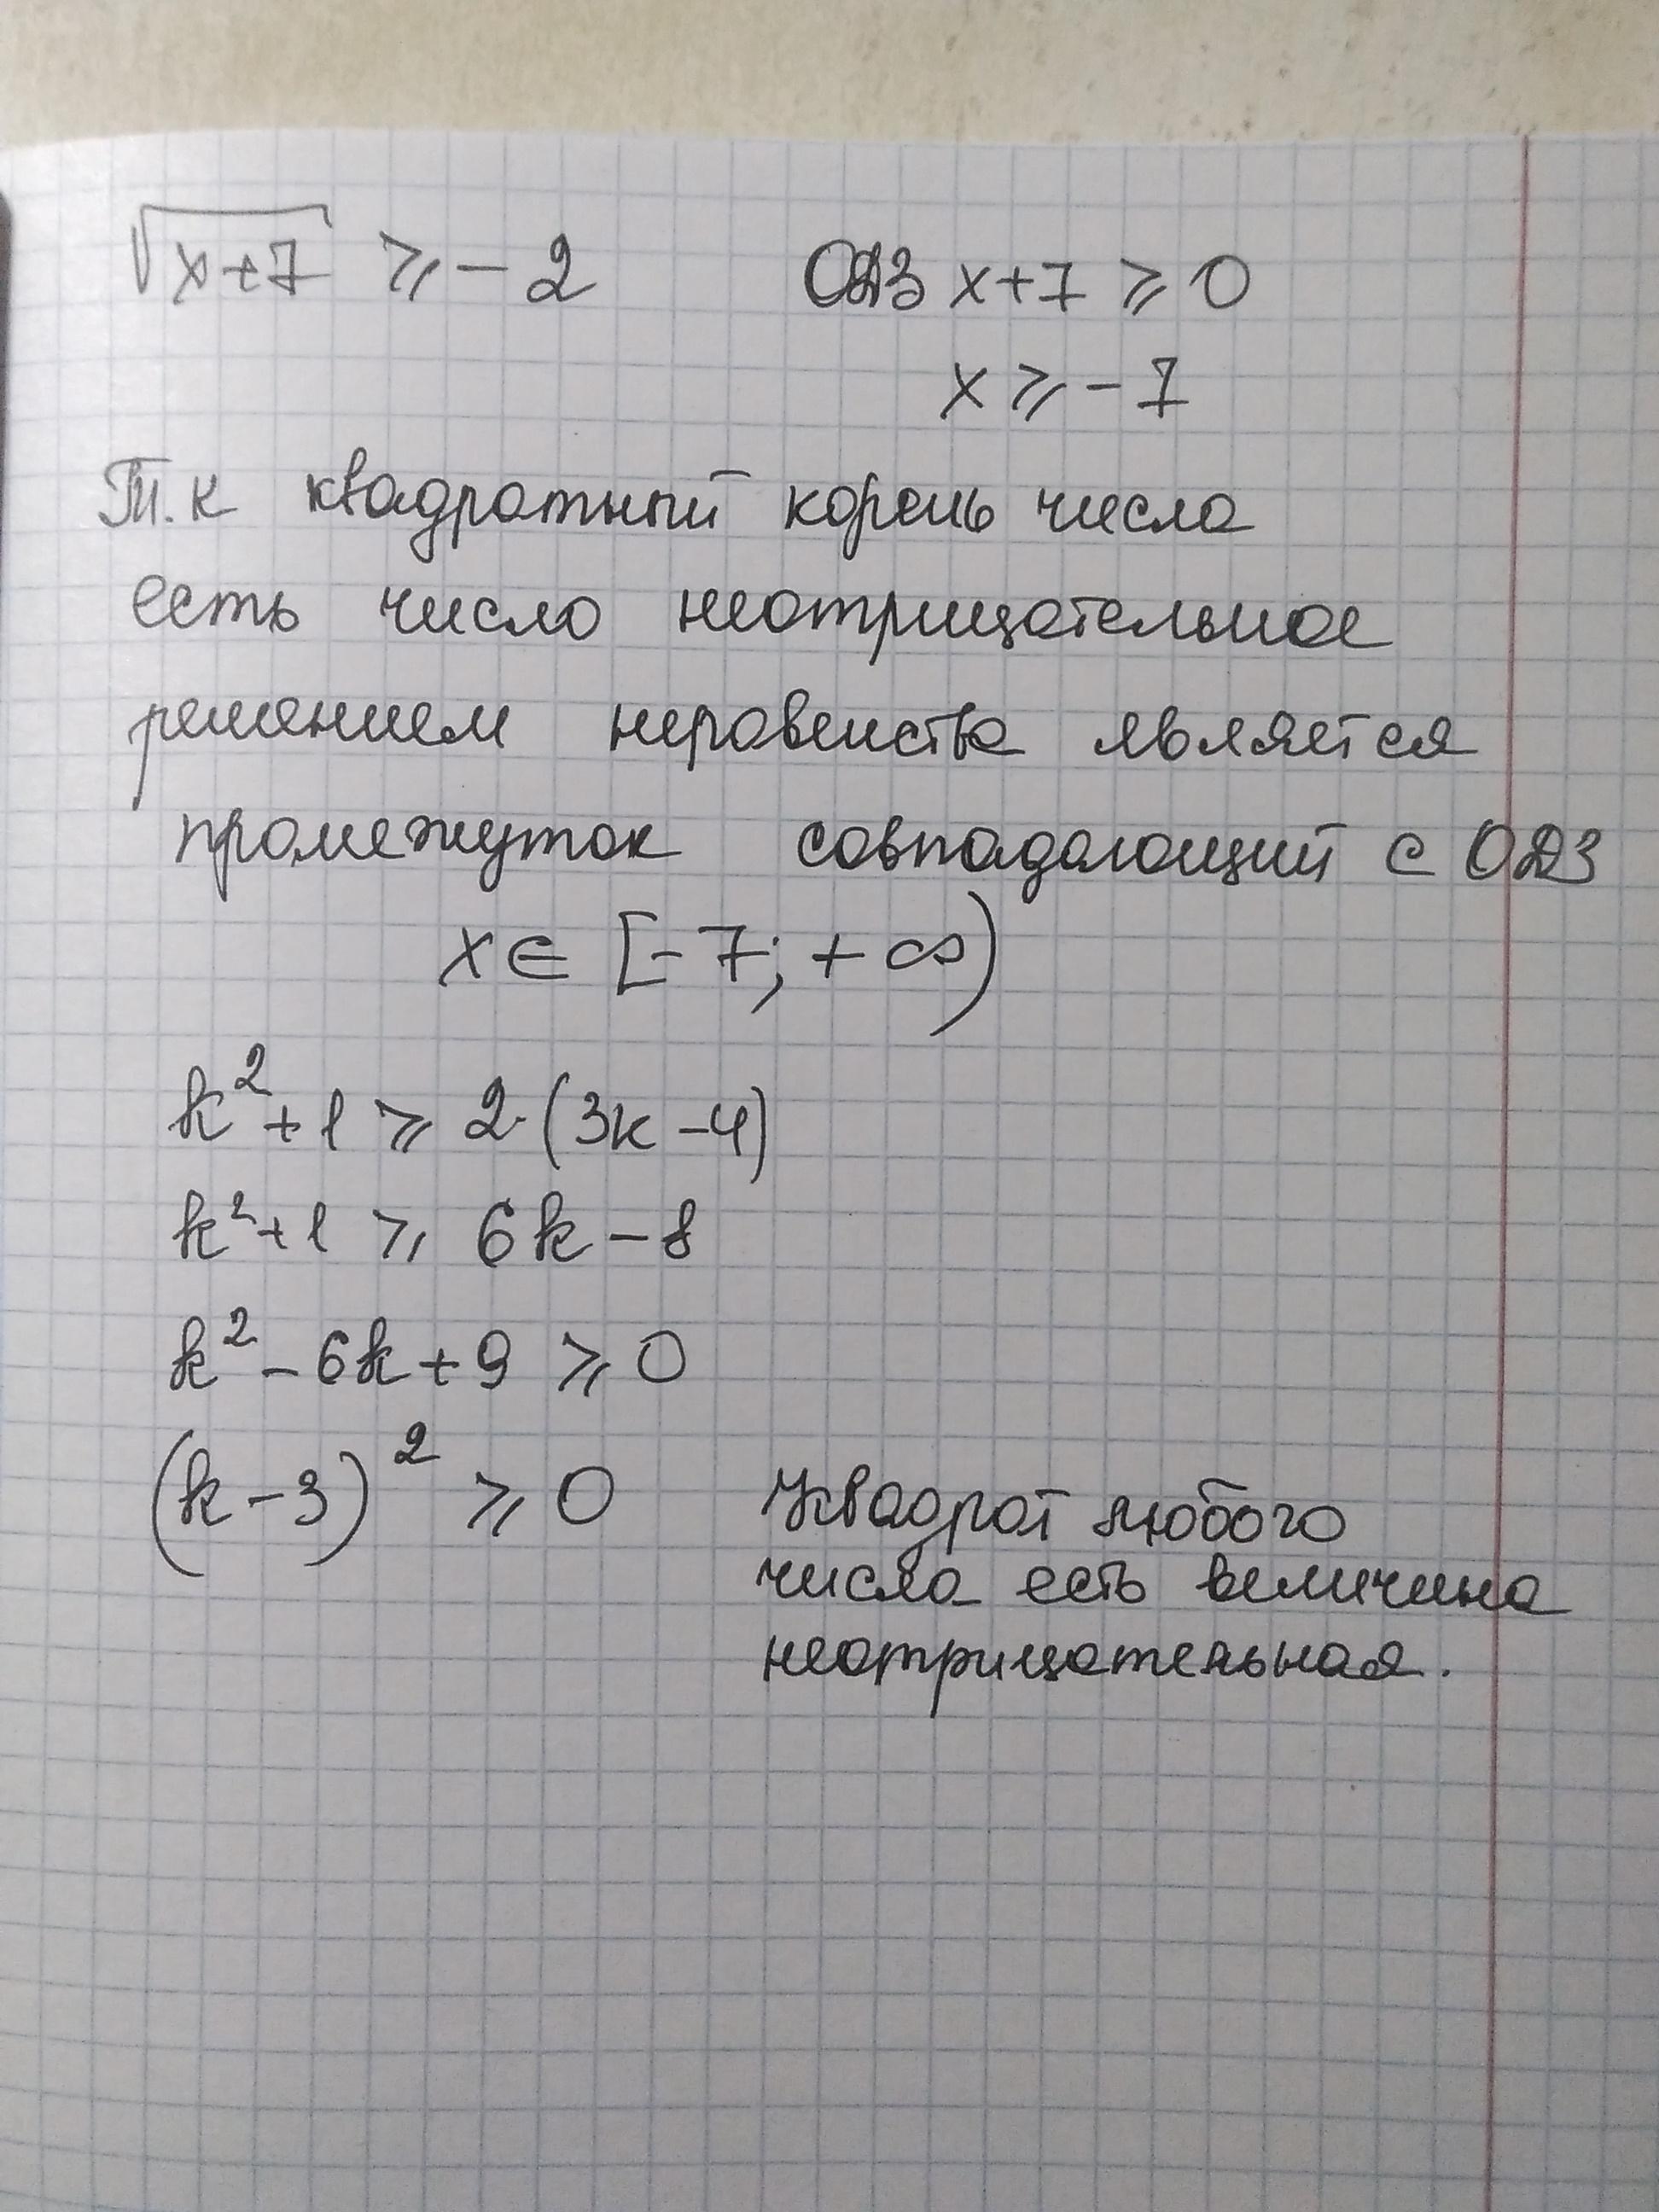 √x+7 ≥ -2 ОДЗ x+7 ≥ 0
x ≥ -7
Т.к квадратный корень числа
есть число неотрицательное
решением неравенства является
промежуток совпадающий с ОДЗ
x ∈ [-7; +∞)
k²+1 ≥ 2·(3k-4)
k²+1 ≥ 6k-8
k²-6k+9 ≥ 0
(k-3)² ≥ 0 Квадрат любого
числа есть величина
неотрицательная.